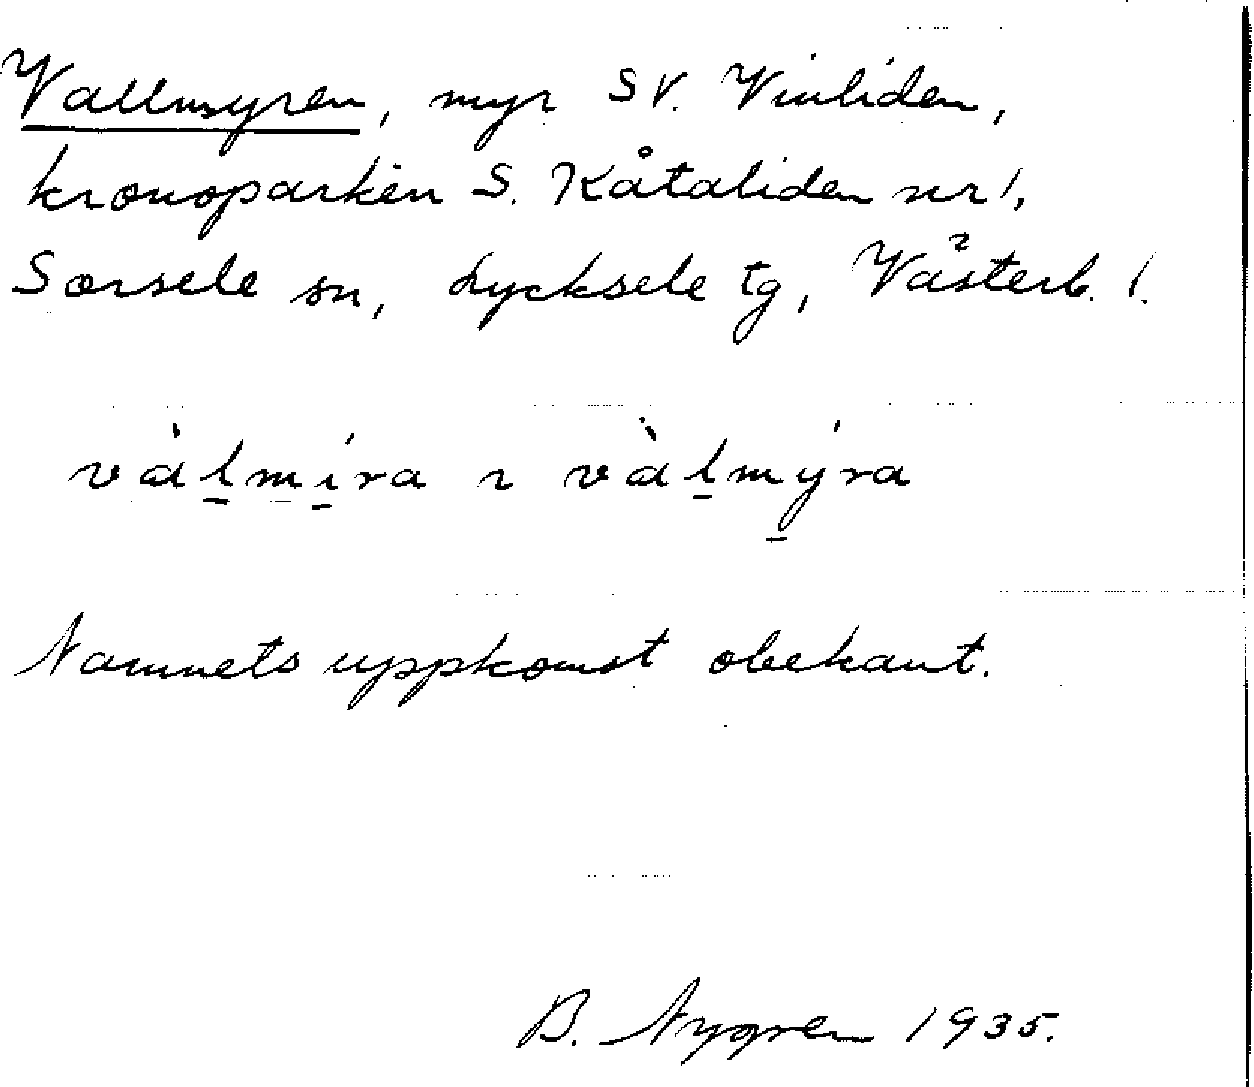 Vallmyren, myr SV. Vinliden,
kronoparken S. Kåtaliden nr 1,
Sorsele sn, Lycksele tg, Västerb. l.
vàl̠mí̠ra ~ vàl̠mý̠ra
Namnets uppkomst obekant.
B. Nygren 1935.